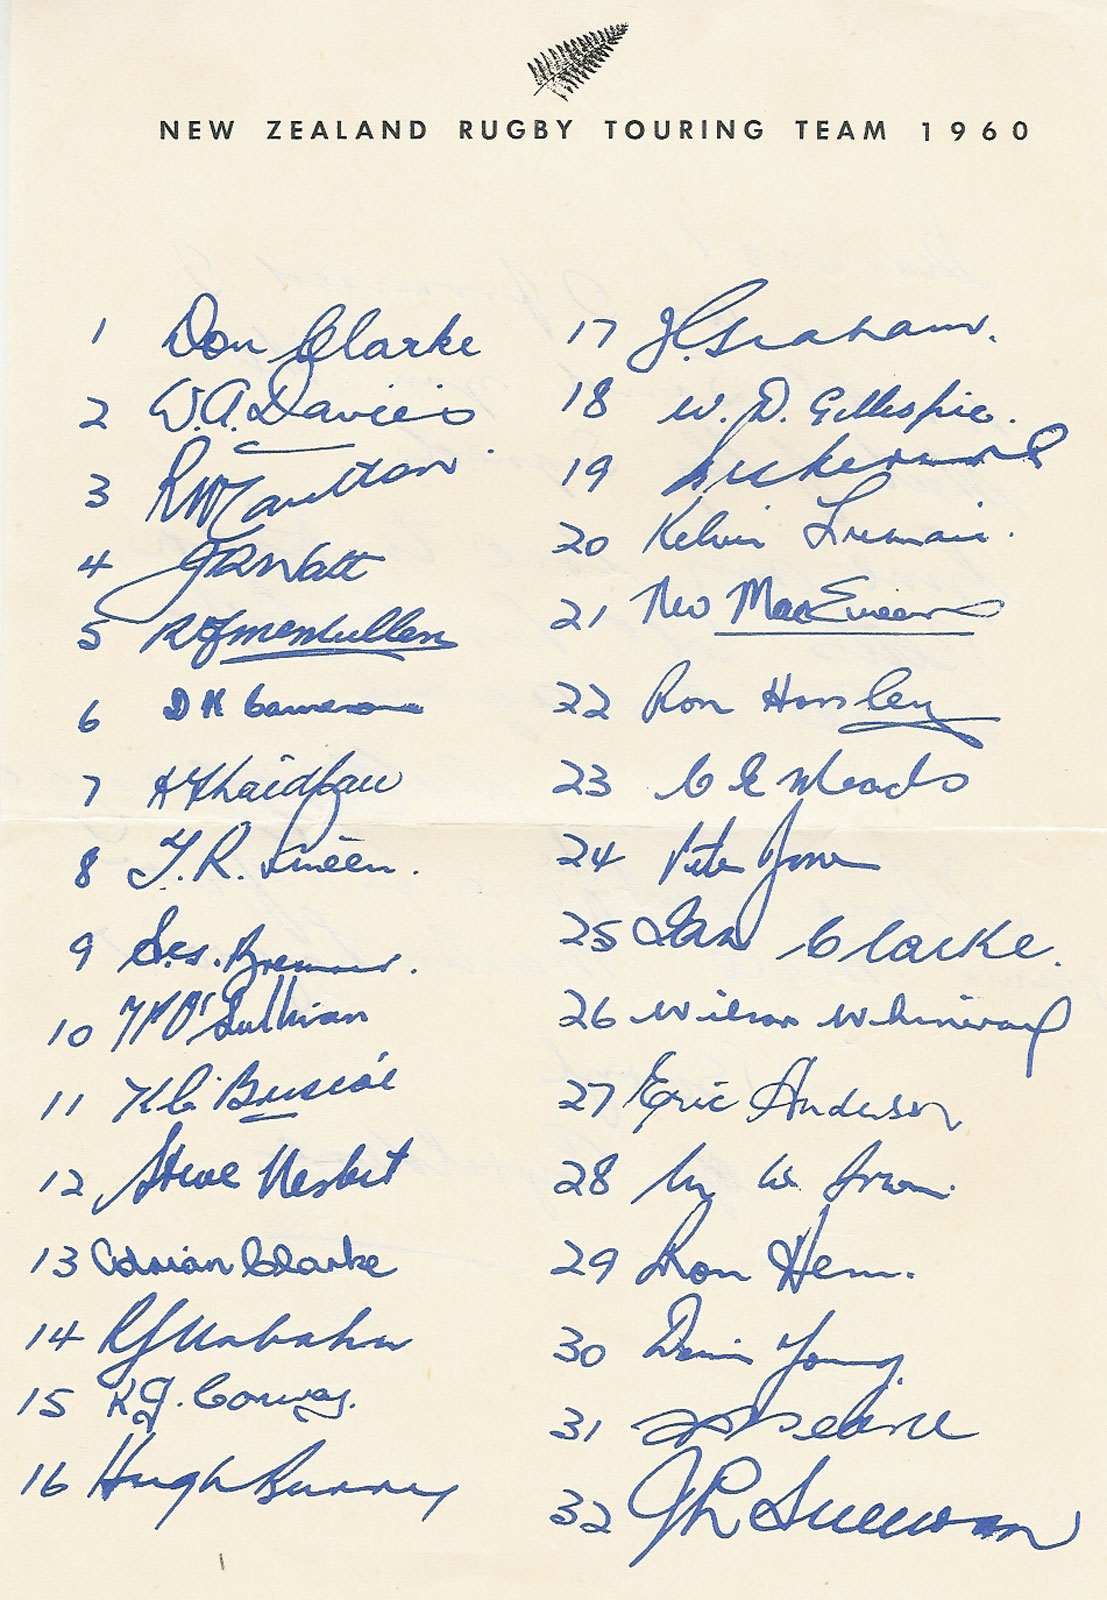 NEW ZEALAND RUGBY TOURING TEAM 1960
1 Don Clarke
2 W.A. Davies
3 RW Caulton
4 JR Watt
5 RF McMullen
6 D N Cameron
7 Laidlaw
8 T. R. Lineen.
9 Bremner.
10 O'Sullivan
11 K C Briscoe
12 Steve Nesbit
13 Adrian Clarke
14 RJ Urbahn
15 RJ. Conway.
16 Hugh Burry
17 Graham.
18 W. D. Gillespie.
19
20 Kelvin Tremain.
21 Nev MacEwan
22 Ron Horsley
23 C E Meads
24 Peter Jones
25 Ian Clarke.
26 Wilson Whineray
27 Eric Anderson
28 M W Irwin.
29 Ron Hemi.
30 Dennis Young.
31 Pearce
32 Sullivan